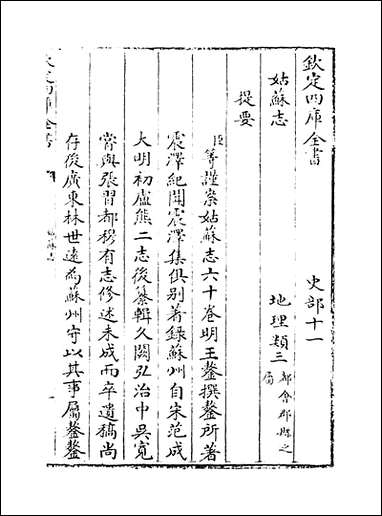 欽定四庫全書　史部十一
姑蘇志　地理類三都會郡縣之屬
提要
臣等謹案姑蘇志六十卷明王鏊撰鏊所著
震澤紀聞震澤集俱别著録蘇州自宋范成
大明初盧熊二志後纂輯久闕弘治中吳寛
嘗與張習都穆有志修述未成而卒遺稿尚
存後廣東林世遠為蘇州守以其事屬鏊鏊